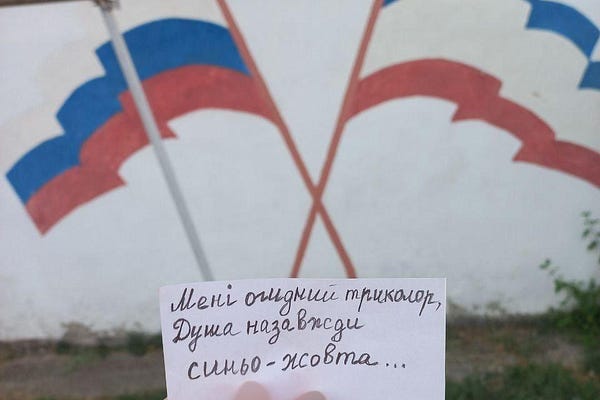 Мені огидний триколор,
Душа назавжди
синьо-жовта...